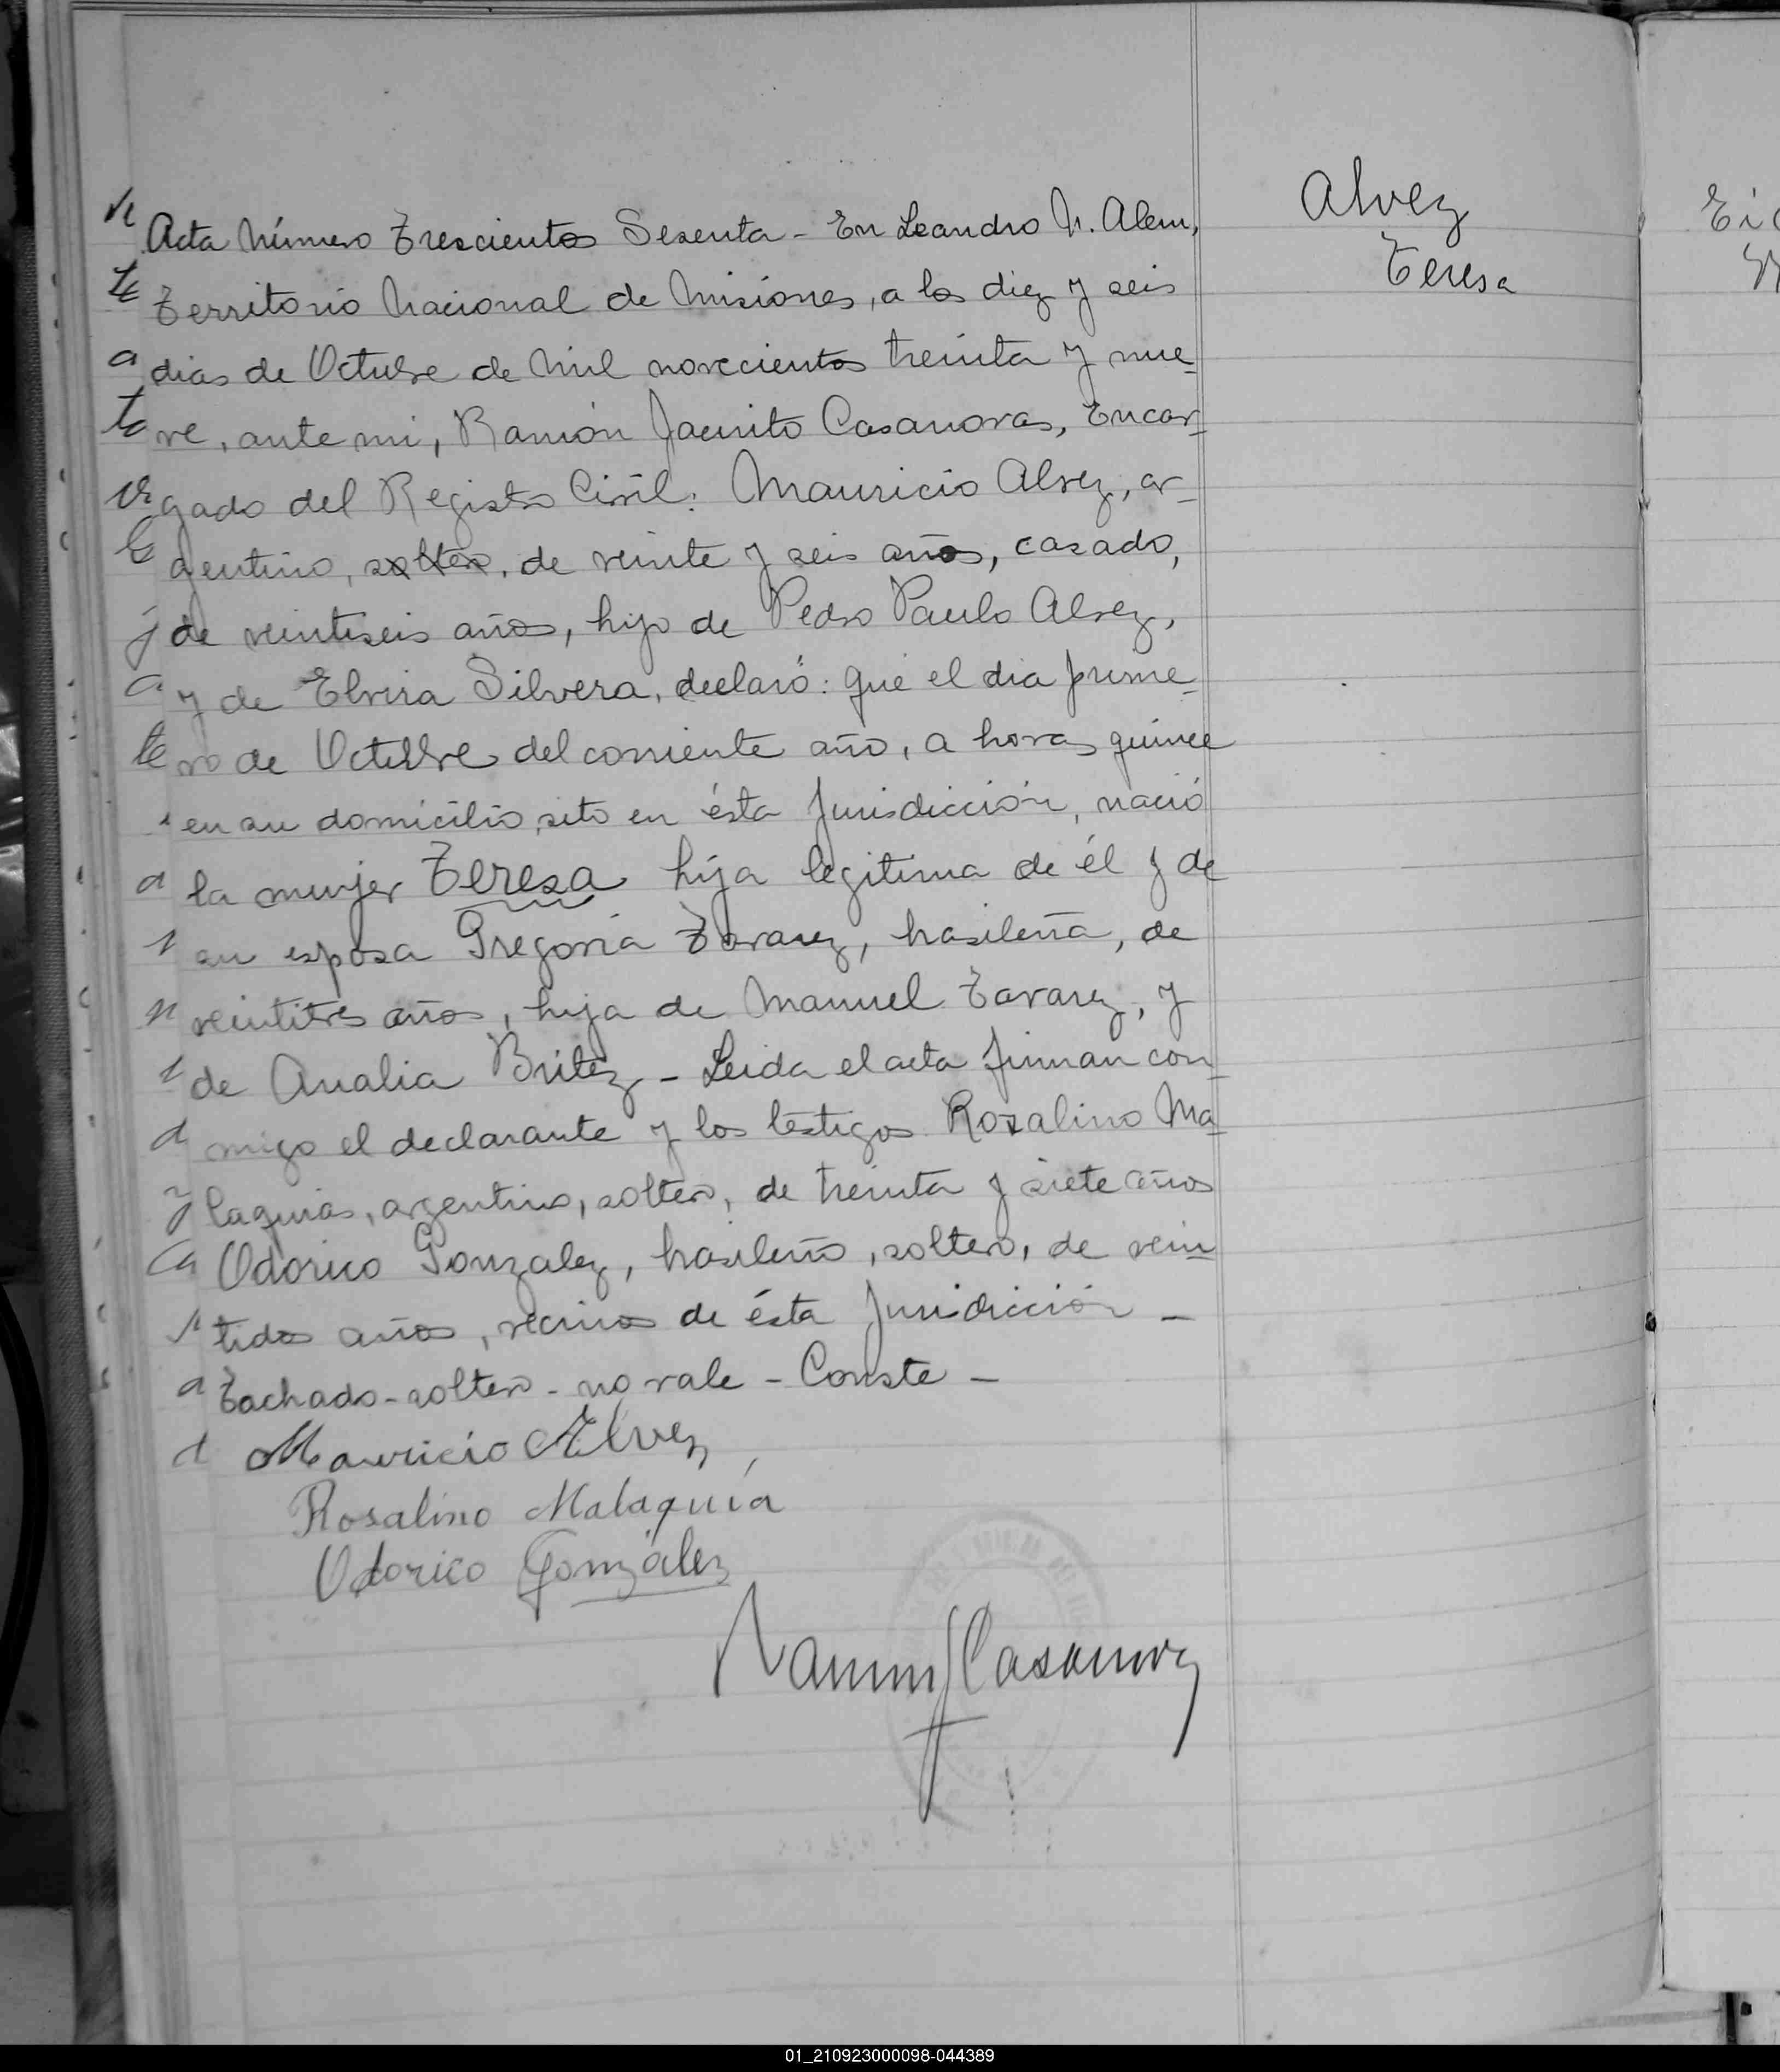 Alvez
Teresa
Acta Número Trescientos Sesenta - En Leandro N. Alem,
Territorio Nacional de Misiones, a los diez y seis
dias de Octubre de Mil novecientos treinta y nue-
ve, ante mi, Ramón Jacinto Casanovas, Encar-
gado del Registro Civil: Mauricio Alvez, ar-
gentino, soltero, de veinte y seis años, casado,
de veintiseis años, hijo de Pedro Paulo Alvez,
y de Elvira Silvera, declaró: que el dia prime-
ro de Octubre del corriente año, a horas quince
en su domicilio, sito en ésta Jurisdicción, nació
la mujer Teresa hija legitima de él y de
su esposa Gregoria Tavarez, brasileña, de
veintitres años, hija de Manuel Tavarez, y
de Analia Britez - Leida el acta firman con-
migo el declarante y los testigos Rozalino Ma-
laquias, argentino, soltero, de treinta y siete años
Odorico Gonzalez, brasileño, soltero, de vein-
tidos años, vecinos de ésta Jurisdicción -
Tachado - soltero - no vale - Conste -
Mauricio Alvez
Rosalino Malaquía
Odorico González
Ramon J Casanova
01_210923000098-044389